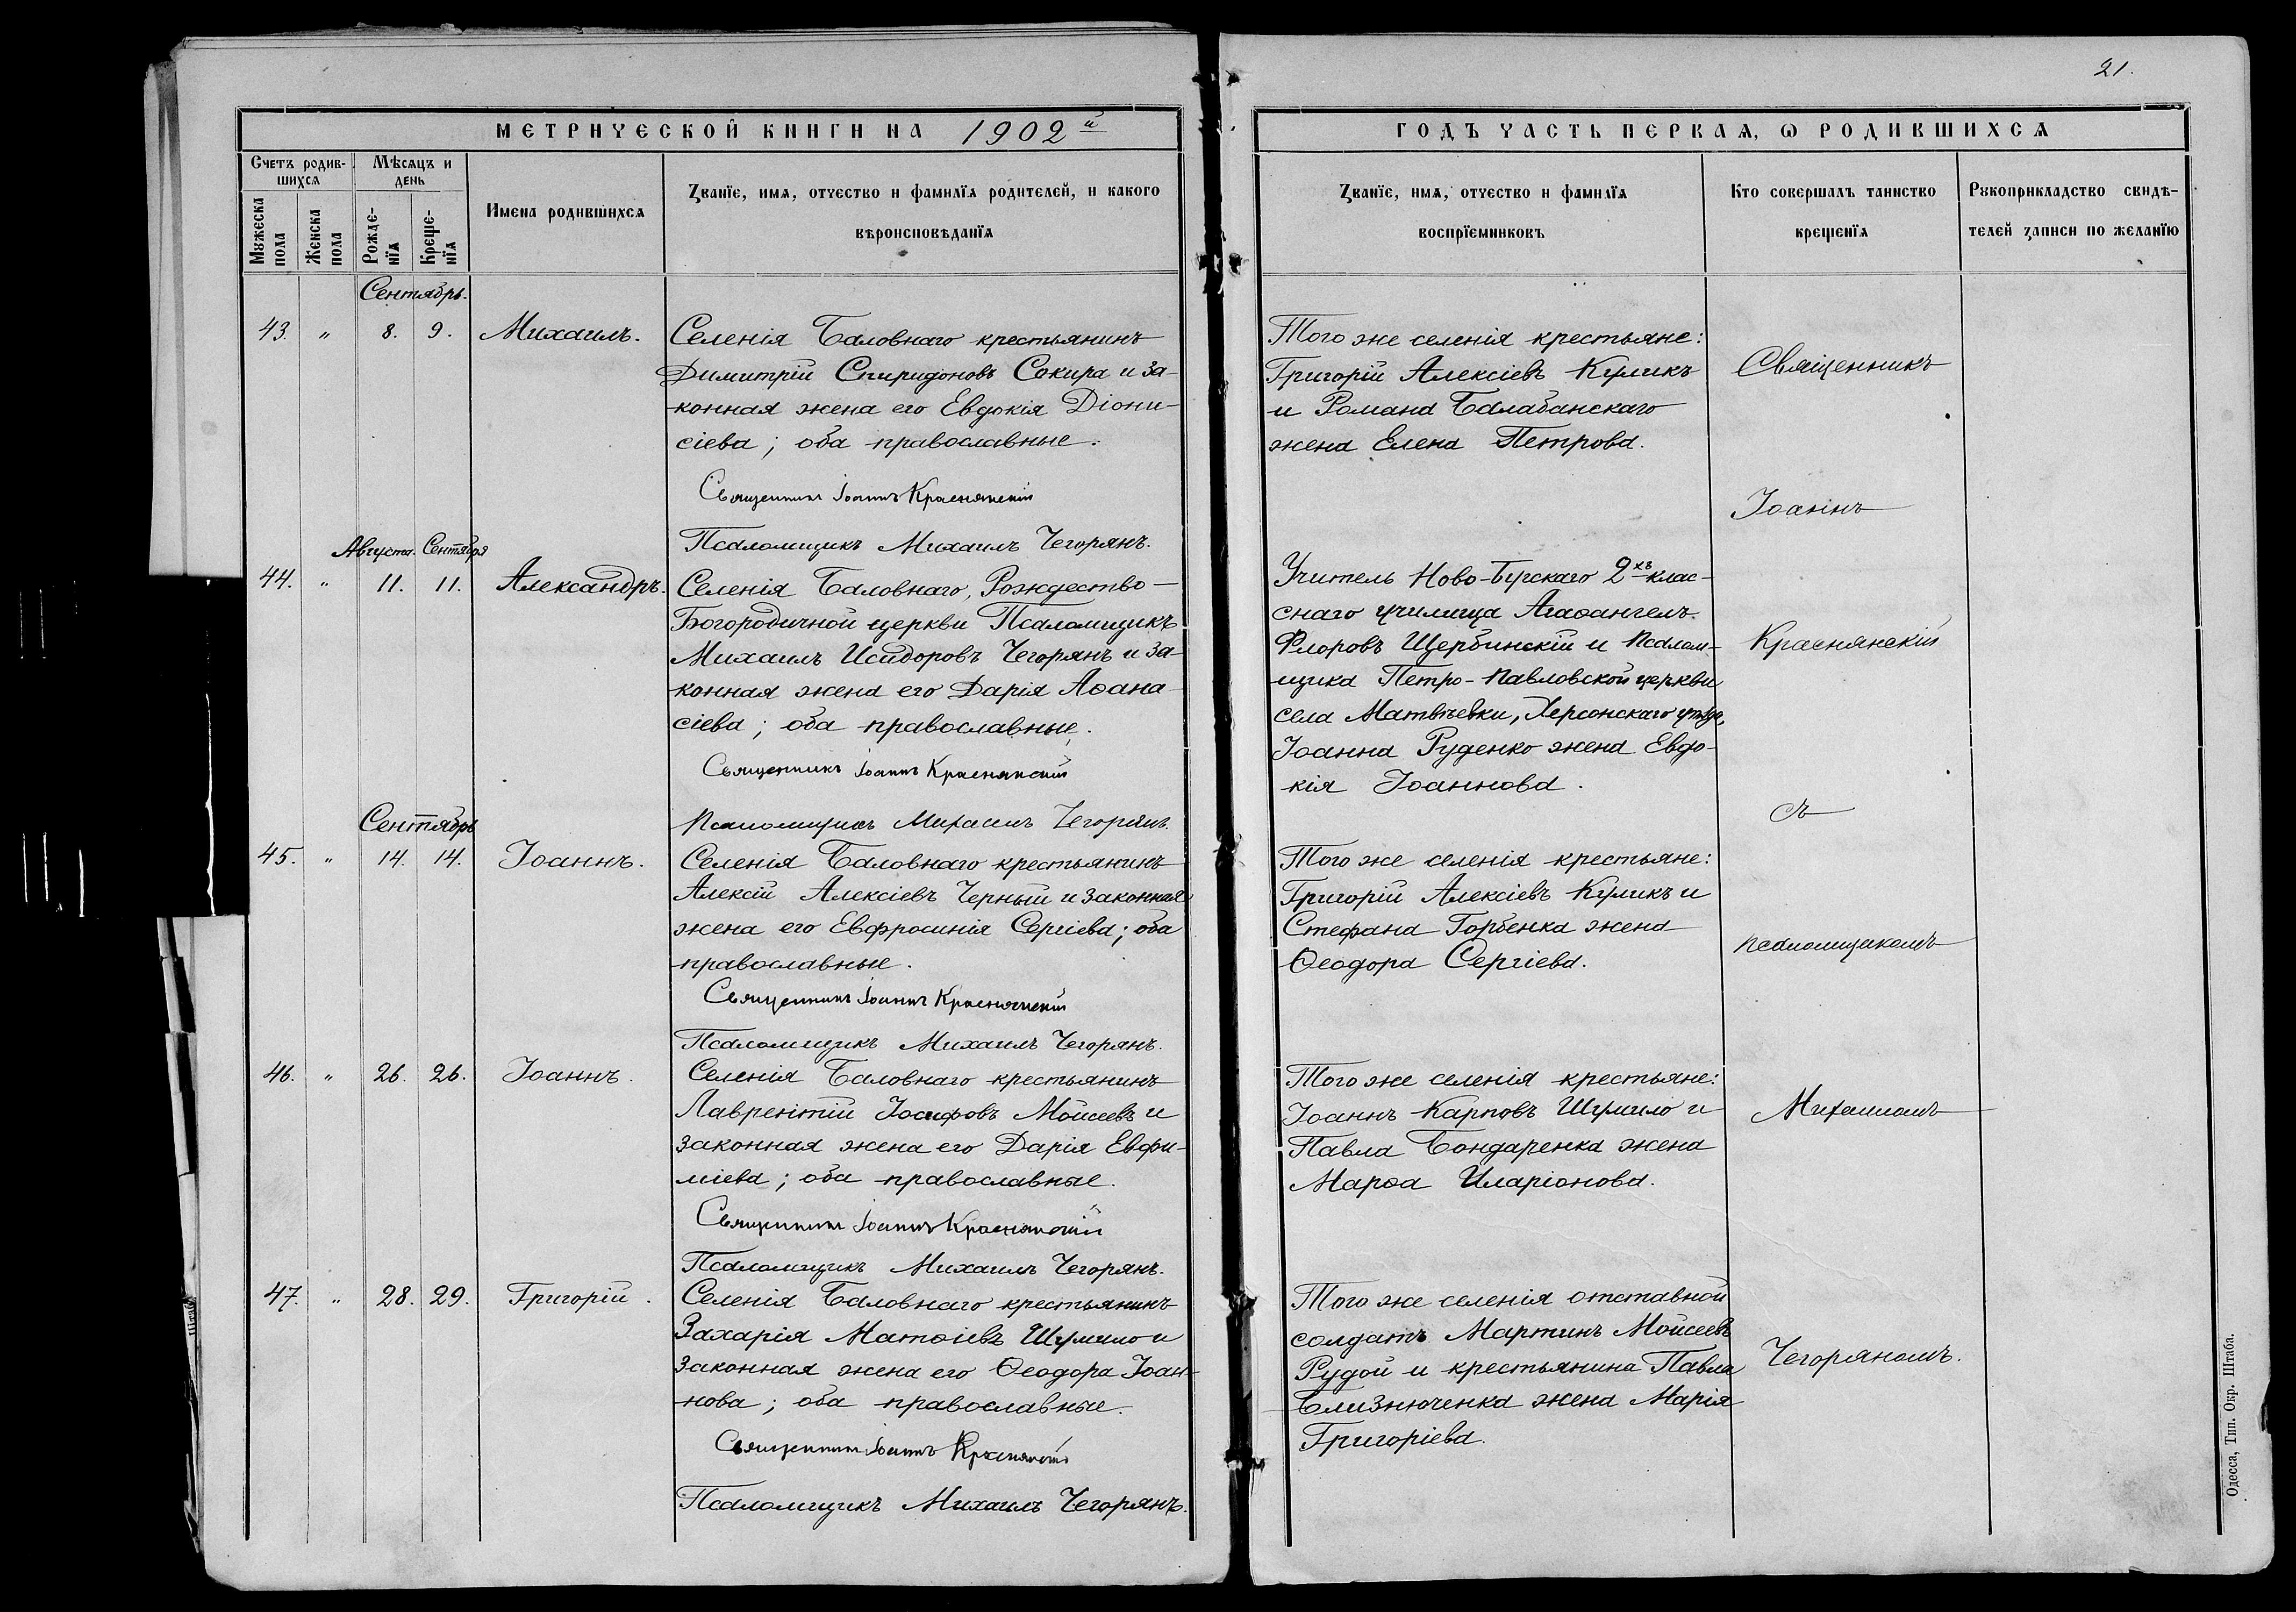 21.
МЕТРИЧЕСКОЙ КНИГИ НА 1902й
ГОДЪ ЧАСТЬ ПЕРВАЯ, Ѡ РОДИВШИХСѦ
Счетъ родив-
шихсѧ
Мѣсѧцъ и
день
Мꙋжеска
пола
Женска
пола
Рожде-
нїѧ
Креще-
нїѧ
Имена родившихсѧ
Званїе, имѧ, отчество и фамилїѧ родителей, и какого
вѣроисповѣданїѧ
Званїе, имѧ, отчество и фамилїѧ
воспрїемниковъ
Кто совершалъ таинство
крещенїѧ
Рꙋкоприкладство свидѣ-
телей записи по желанїю
Сентябрь.
43. „ 8. 9. Михаилъ.
Селенія Баловнаго крестьянинъ
Димитрій Спиридоновъ Сокира и за-
конная жена его Евдокія Діони-
сіева; оба православные.
Священникъ Іоаннъ Краснянскій
Псаломщикъ Михаилъ Чегорянъ.
Того же селенія крестьяне:
Григорій Алексіевъ Куликъ
и Романа Балабанскаго
жена Елена Петрова.
Августа. Сентября
44. „ 11. 11. Александръ.
Селенія Баловнаго, Рождество-
Богородичной церкви Псаломщикъ
Михаилъ Исидоровъ Чегорянъ и за-
конная жена его Дарія Аѳана-
сіева; оба православные.
Священникъ Іоаннъ Краснянскій
Псаломщикъ Михаилъ Чегорянъ.
Учитель Ново-Бугскаго 2хъ-клас-
снаго училища Агаѳангелъ
Флоровъ Щербинскій и Псалом-
щика Петро-Павловской церкви
села Матвѣевки, Херсонскаго уѣзда,
Іоанна Руденко жена Евдо-
кія Іоаннова.
Сентябрь
45. „ 14. 14. Іоаннъ.
Селенія Баловнаго крестьянинъ
Алексій Алексіевъ Черный и законная
жена его Евфросинія Сергіева; оба
православные.
Священникъ Іоаннъ Краснянскій
Псаломщикъ Михаилъ Чегорянъ.
Того же селенія крестьяне:
Григорій Алексіевъ Куликъ и
Стефана Горбенка жена
Ѳеодора Сергіева.
46. „ 26. 26. Іоаннъ.
Селенія Баловнаго крестьянинъ
Лаврентій Іосифовъ Мойсеевъ и
законная жена его Дарія Евфи-
міева; оба православные.
Священникъ Іоаннъ Краснянскій
Псаломщикъ Михаилъ Чегорянъ.
Того же селенія крестьяне:
Іоаннъ Карповъ Шумило и
Павла Бондаренка жена
Марѳа Иларіонова.
47. „ 28. 29. Григорій.
Селенія Баловнаго крестьянинъ
Захарія Матѳіевъ Шумило и
законная жена его Ѳеодора Іоан-
нова; оба православные.
Священникъ Іоаннъ Краснянскій
Псаломщикъ Михаилъ Чегорянъ.
Того же селенія отставной
солдатъ Мартинъ Мойсеевъ
Рудой и крестьянина Павла
Близнюченка жена Марія
Григоріева.
Священникъ
Іоаннъ
Краснянскій
съ
псаломщикомъ
Михаиломъ
Чегоряномъ.
Одесса, Тип. Окр. Штаба.